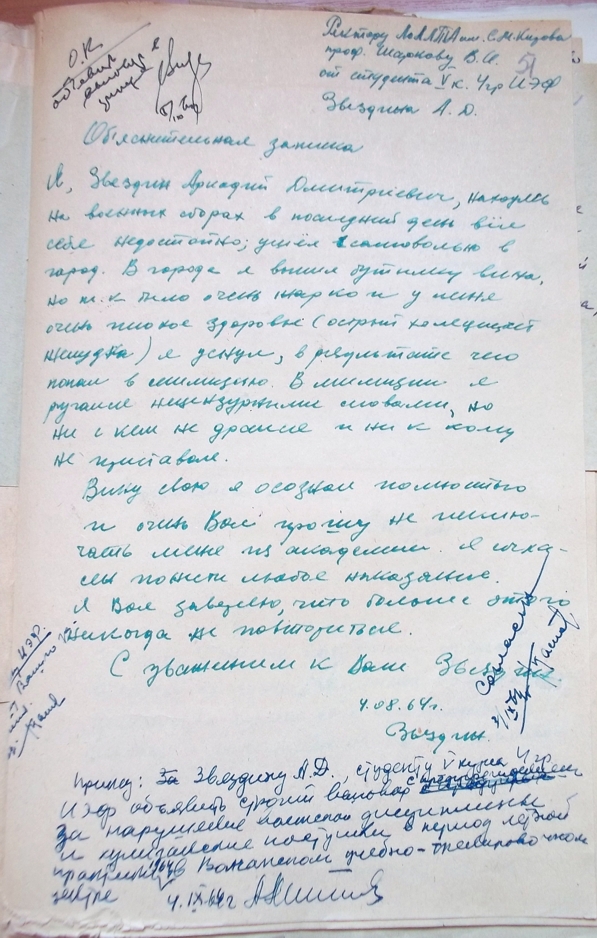 О.К
объявить
Ректору ЛОЛЛТА им. С.М. Кирова
проф. Шаркову В.И.
51
от студента V к. 4 гр ИЭФ
Звездина А. Д.
Объяснительная записка
Я, Звездин Аркадий Дмитриевич, находясь
на военных сборах в последний день вёл
себя недостойно; ушёл самовольно в
город. В городе я выпил бутылку вина,
но т.к было очень жарко и у меня
очень плохое здоровье (острый холецистит
желудка) я уснул, в результате чего
попал в милицию. В милиции я
ругался нецензурными словами, но
ни с кем не дрался и ни к кому
не приставал.
Вину свою я осознал полностью
и очень Вас прошу не исклю-
чать меня из академии. Я соглa-
сен понести любое наказание.
Я Вас заверяю, что больше этого
никогда не повториться.
С уважением к Вам Звездин.
4.08.64г.
Звездин.
Согласен
Приказ: Звездину А.Д., студенту V курса 4 гр
ИЭФ объявить строгий выговор с предупреждением
за нарушение воинской дисциплины
и хулиганские поступки в период летней
практики 1964 в учебно-тренировочном
центре 4.IX.64г